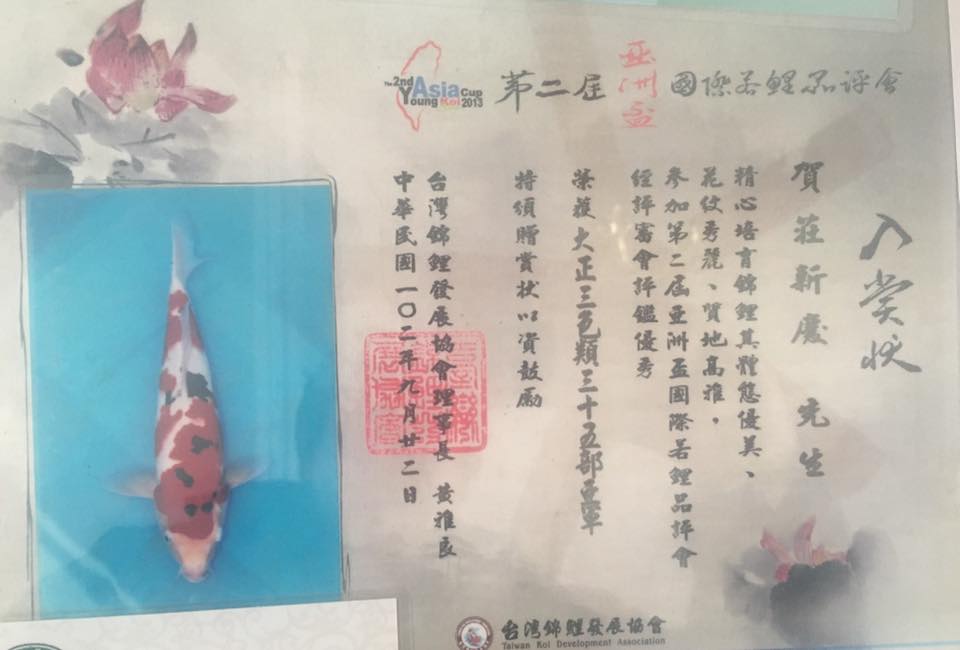 The 2nd Asia Cup
Young Koi 2013
第二屆亞洲盃國際若鯉品評會
入賞狀
賀莊新慶 先生
精心培育錦鯉其體態優美、
花紋秀麗、質地高雅，
參加第二屆亞洲盃國際若鯉品評會
經評審會評鑑優秀
榮獲大正三色類三十五部亞軍
特頒贈賞狀以資鼓勵
台灣錦鯉發展協會理事長 黃雅良
中華民國一〇二年九月廿二日
台灣錦鯉發展協會
Taiwan Koi Development Association